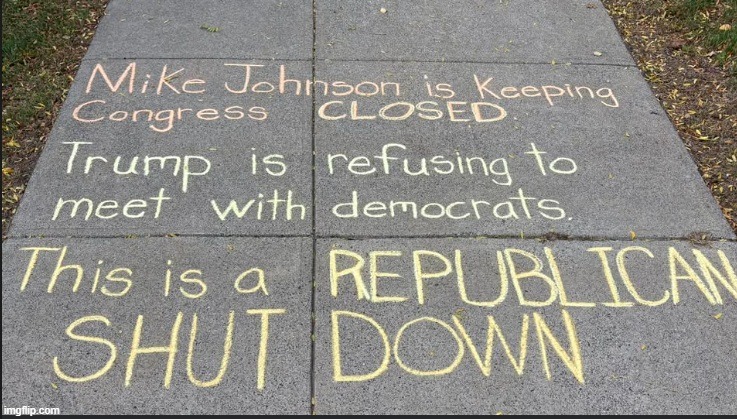 Mike Johnson is Keeping
Congress CLOSED.
Trump is refusing to
meet with democrats.
This is a REPUBLICAN
SHUT DOWN
imgflip.com